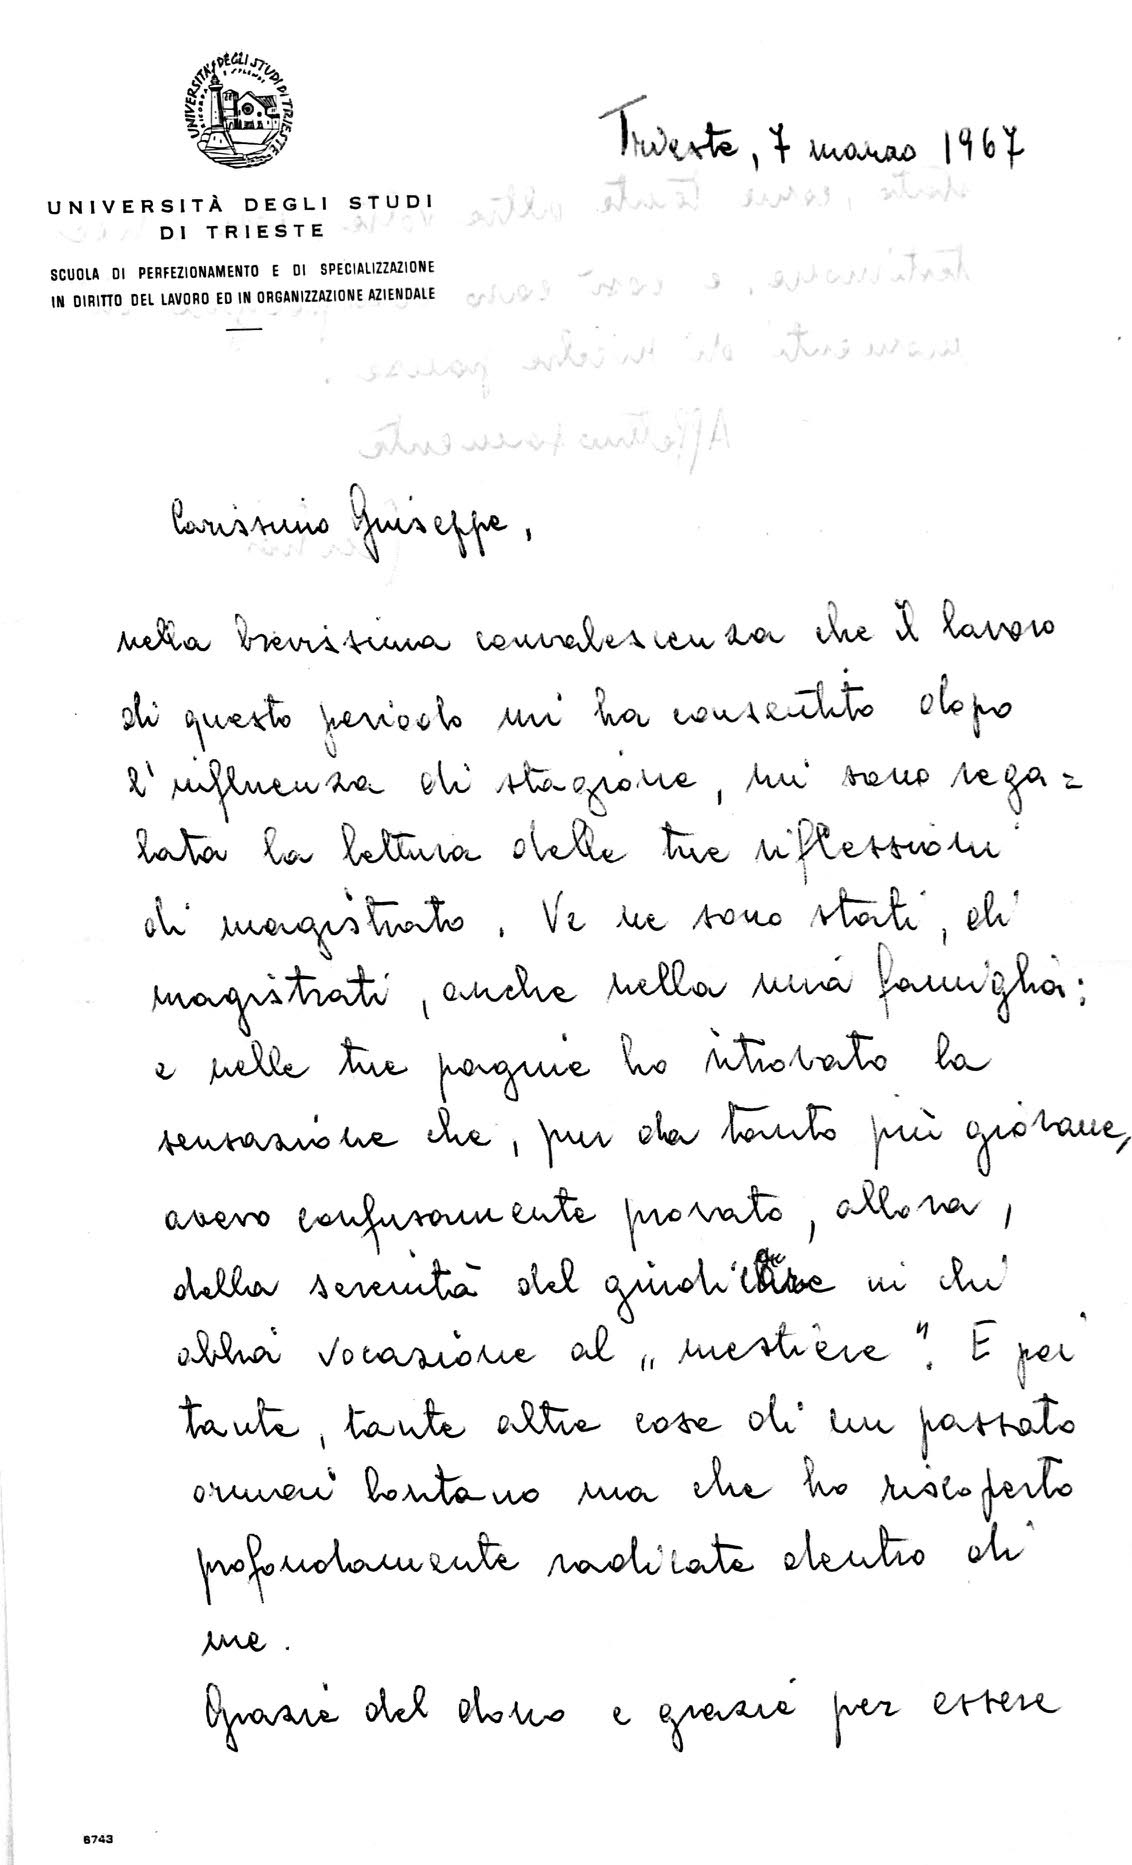 UNIVERSITÀ DEGLI STUDI DI TRIESTE
Trieste, 7 marzo 1967
UNIVERSITÀ DEGLI STUDI
DI TRIESTE
SCUOLA DI PERFEZIONAMENTO E DI SPECIALIZZAZIONE
IN DIRITTO DEL LAVORO ED IN ORGANIZZAZIONE AZIENDALE
Carissimo Giuseppe,
nella brevissima convalescenza che il lavoro
di questo periodo mi ha consentito dopo
l'influenza di stagione, mi sono rega=
lata la lettura delle tue riflessioni
di magistrato. Ve ne sono stati, di
magistrati, anche nella mia famiglia:
e nelle tue pagine ho ritrovato la
sensazione che, pur da tanto più giovane,
avevo confusamente provato, allora,
della serenità del giudicare in chi
abbia vocazione al „mestiere". E poi
tante, tante altre cose di un passato
ormai lontano ma che ho riscoperto
profondamente radicate dentro di
me.
Grazie del dono e grazie per essere
6743